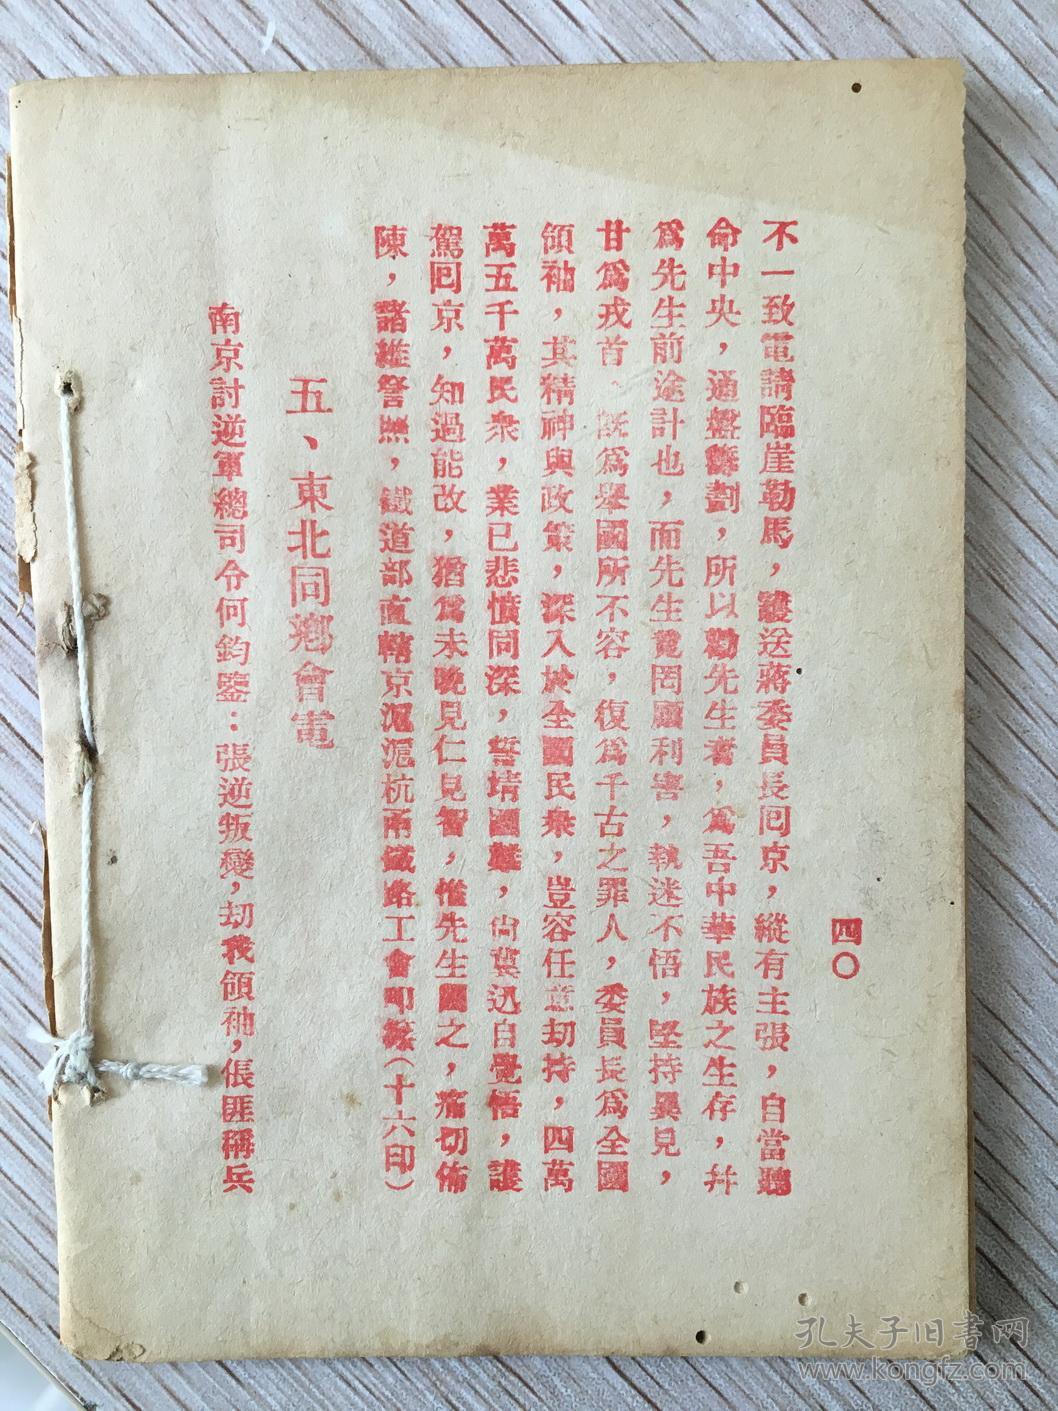 四〇
不一致電請臨崖勒馬，護送蔣委員長囘京，縱有主張，自當聽
命中央，通盤籌劃，所以勸先生者，爲吾中華民族之生存，幷
爲先生前途計也，而先生竟罔顧利害，執迷不悟，堅持異見，
甘爲戎首、旣爲舉國所不容，復爲千古之罪人，委員長爲全國
領袖，其精神與政策，深入於全國民衆，豈容任意刼持，四萬
萬五千萬民衆，業已悲憤同深，誓靖國難，尙冀迅自覺悟，護
駕囘京，知過能改，猶爲未晚見仁見智，惟先生圖之，痛切佈
陳，諸維警照，鐵道部直轄京滬滬杭甬鐵路工會叩篠（十六印）
五、東北同鄕會電
南京討逆軍總司令何鈞鑒：張逆叛變，刼我領袖，倀匪稱兵
孔夫子旧書网
www.kongfz.com